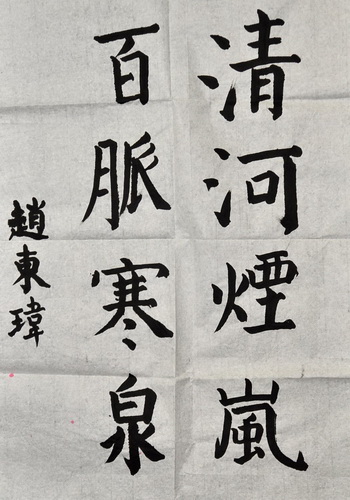 清河煙嵐
百脈寒泉
趙東瑋